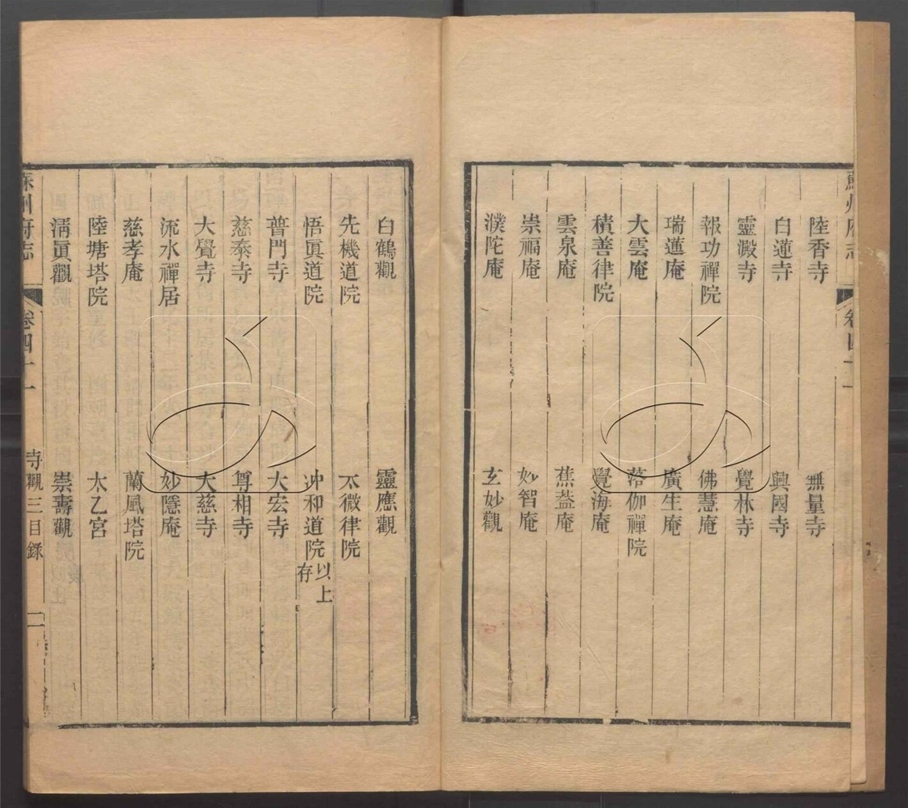 蘇州府志
卷四十一
陸香寺
無量寺
白蓮寺
興國寺
靈澱寺
覺林寺
報功禪院
佛慧庵
瑞蓮庵
廣生庵
大雲庵
蒂伽禪院
積善律院
覺海庵
雲泉庵
蕉益庵
崇福庵
妙智庵
濮陀庵
玄妙觀
白鶴觀
靈應觀
先機道院
太微律院
悟真道院
冲和道院以上存
普門寺
大宏寺
慈泰寺
尊相寺
大覺寺
大慈寺
流水禪居
妙隱庵
慈孝庵
蘭風塔院
陸塘塔院
太乙宮
清真觀
崇壽觀
蘇州府志
卷四十一
寺觀三目錄